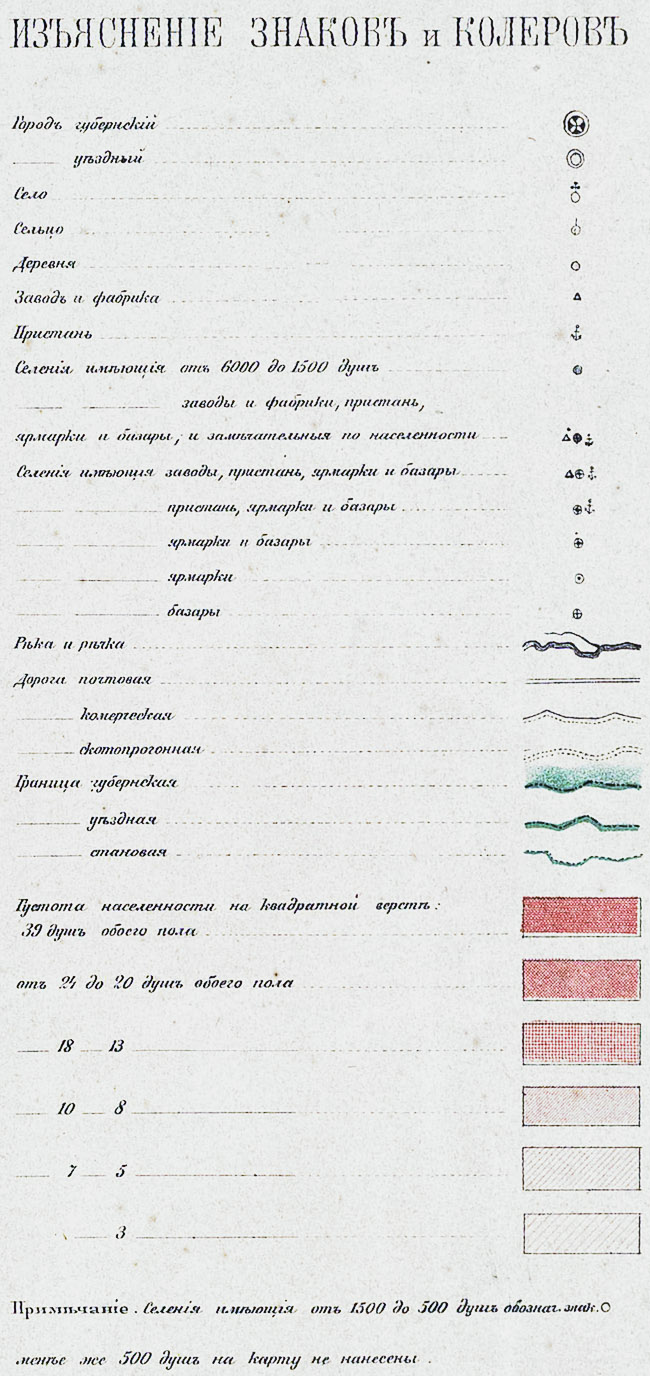 ИЗЪЯСНЕНІЕ ЗНАКОВЪ и КОЛЕРОВЪ
Городъ губернскій
уѣздный
Село
Сельцо
Деревня
Заводъ и фабрика
Пристань
Селенія имѣющія отъ 6000 до 1500 душъ
заводы и фабрики, пристань,
ярмарки и базары, и замѣчательныя по населенности
Селенія имѣющия заводы, пристань, ярмарки и базары
пристань, ярмарки и базары
ярмарки и базары
ярмарки
базары
Рѣка и рѣчка
Дорога почтовая
комерческая
скотопрогонная
Граница губернская
уѣздная
становая
Густота населенности на квадратной верстѣ:
39 душъ обоего пола
отъ 24 до 20 душъ обоего пола
18 13
10 8
7 5
3
Примѣчаніе. Селенія имѣющія отъ 1500 до 500 душъ обознач. знак.
менѣе же 500 душъ на карту не нанесены.